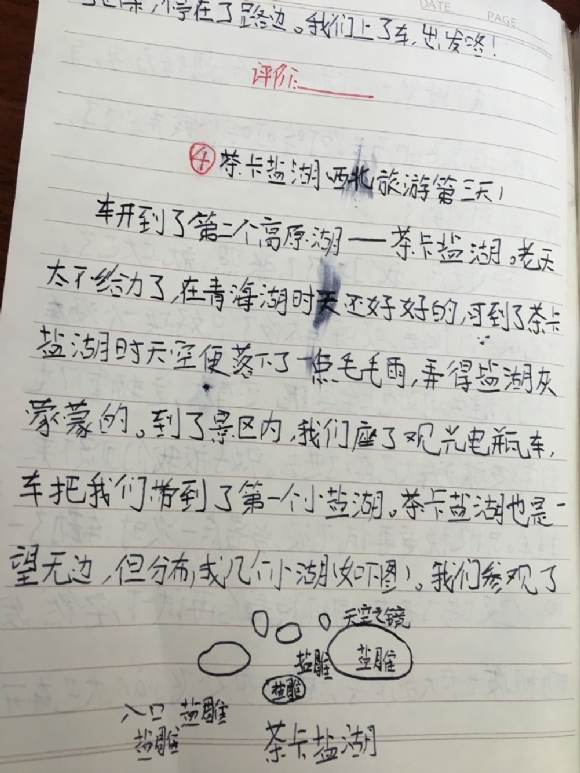 DATE PAGE
停在了路边。我们上了车,出发咯!
评价:
④茶卡盐湖 西北旅游第三天!
车开到了第二个高原湖——茶卡盐湖。老天
太不给力了,在青海湖时天还好好的,可到了茶卡
盐湖时天空便落下了一点毛毛雨,弄得盐湖灰
蒙蒙的。到了景区内,我们座了观光电瓶车,
车把我们带到了第一个小盐湖。茶卡盐湖也是一
望无边,但分布成几个小湖(如下图)。我们参观了
天空之镜
盐雕 盐雕
盐雕
入口 盐雕
盐雕 茶卡盐湖